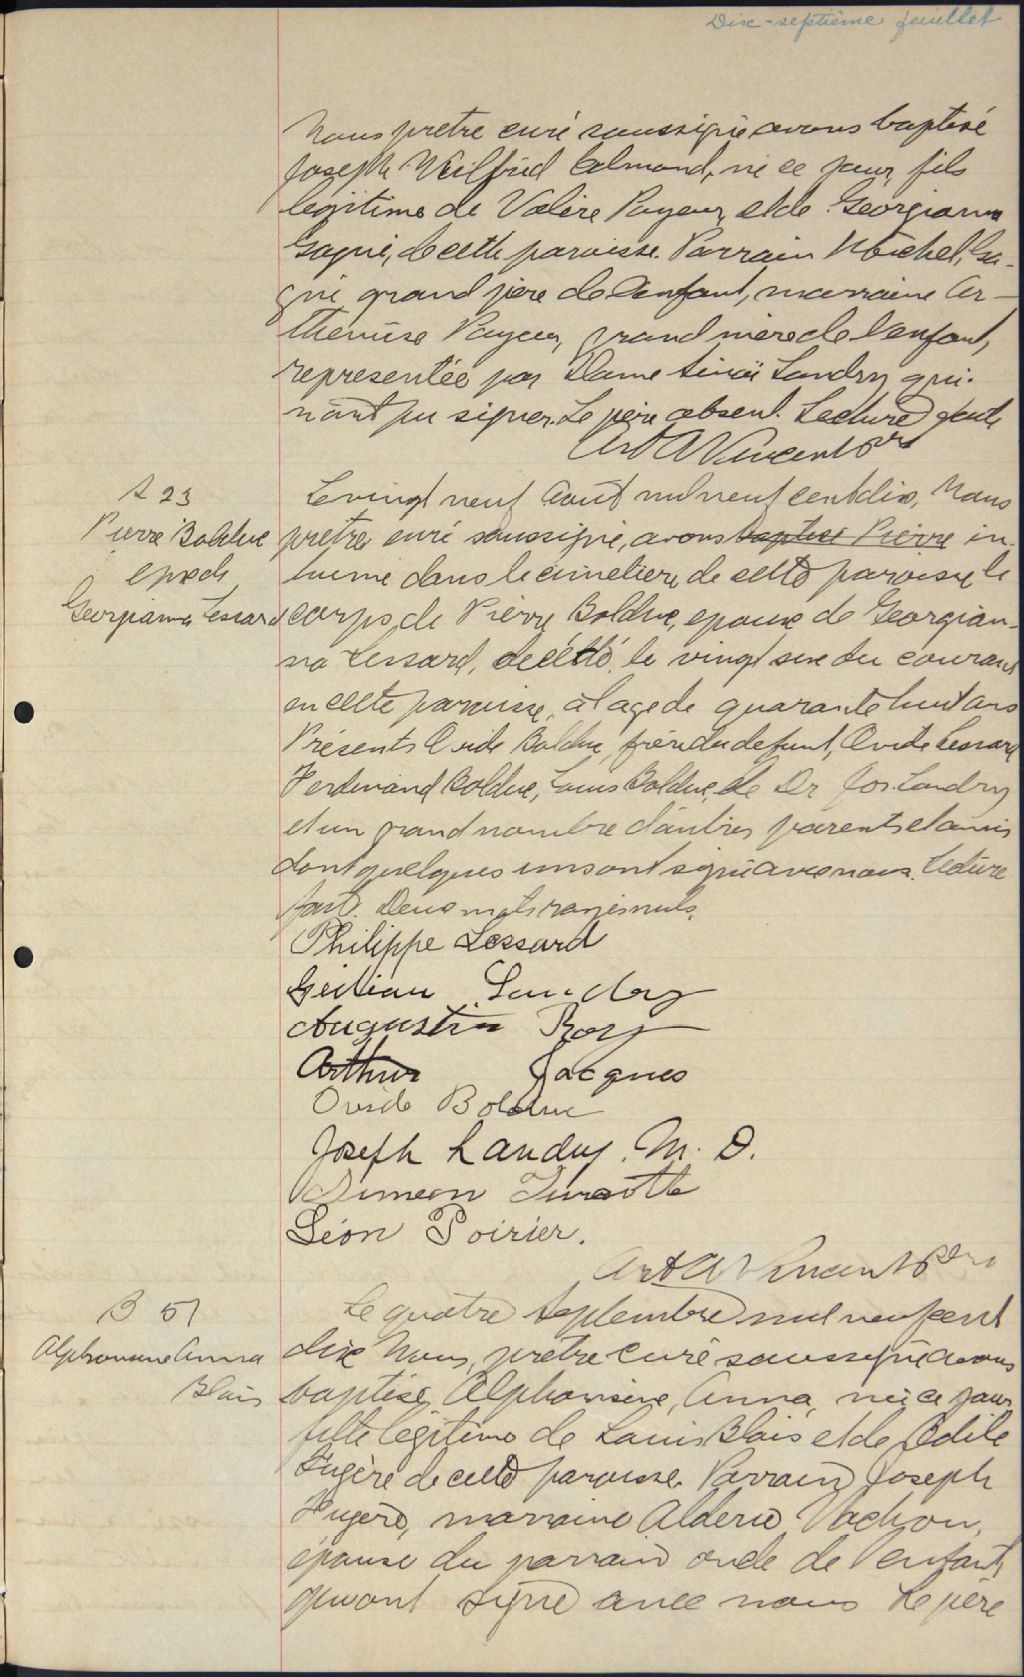 Dix-septième feuillet
Nous prêtre curé soussigné avons baptisé
Joseph Wilfrid Almond, né ce jour, fils
légitime de Valère Payeur, et de Georgianna
Gagné, de cette paroisse. Parrain Michel, Ga-
gné grand père de l'enfant, marraine Ar-
themise Payeur, grand mère de l'enfant,
representée par Dame Landry qui
n'ont pu signer. Le père absent. Lecture faite
Art A Vincent Ptre
S 23
Pierre Bolduc
epx de
Georgianna Lessard
Le vingt neuf Août mil neuf cent dix, Nous
prêtre curé soussigné, avons baptisé Pierre in-
humé dans le cimetière de cette paroisse le
corps de Pierre Bolduc, epoux de Georgian-
na Lessard, décédé le vingt six du courant
en cette paroisse, à l'age de quarante huit ans
Présents Ovide Bolduc, frère du defunt, Ovide Lessard
Ferdinand Bolduc, Louis Bolduc, le Dr Jos. Landry
et un grand nombre d'autres parents et amis
dont quelques uns ont signé avec nous. Lecture
faite. Deux mots rayés nuls.
Philippe Lessard
Gédéon Landry
Augustin Roy
Arthur Jacques
Ovide Bolduc
Joseph Landry, M. D.
Simeon Turcotte
Léon Poirier.
Art A Vincent Ptre
B 51
Alphonsine Anna
Blais
Le quatre Septembre mil neuf cent
dix Nous, prêtre curé soussigné avons
baptisé, Alphonsine, Anna, née ce jour
fille légitime de Louis Blais et de Odile
Fugère de cette paroisse. Parrain Joseph
Fugère, marraine Vachon,
épouse du parrain oncle de l'enfant,
qui ont signé avec nous Le père